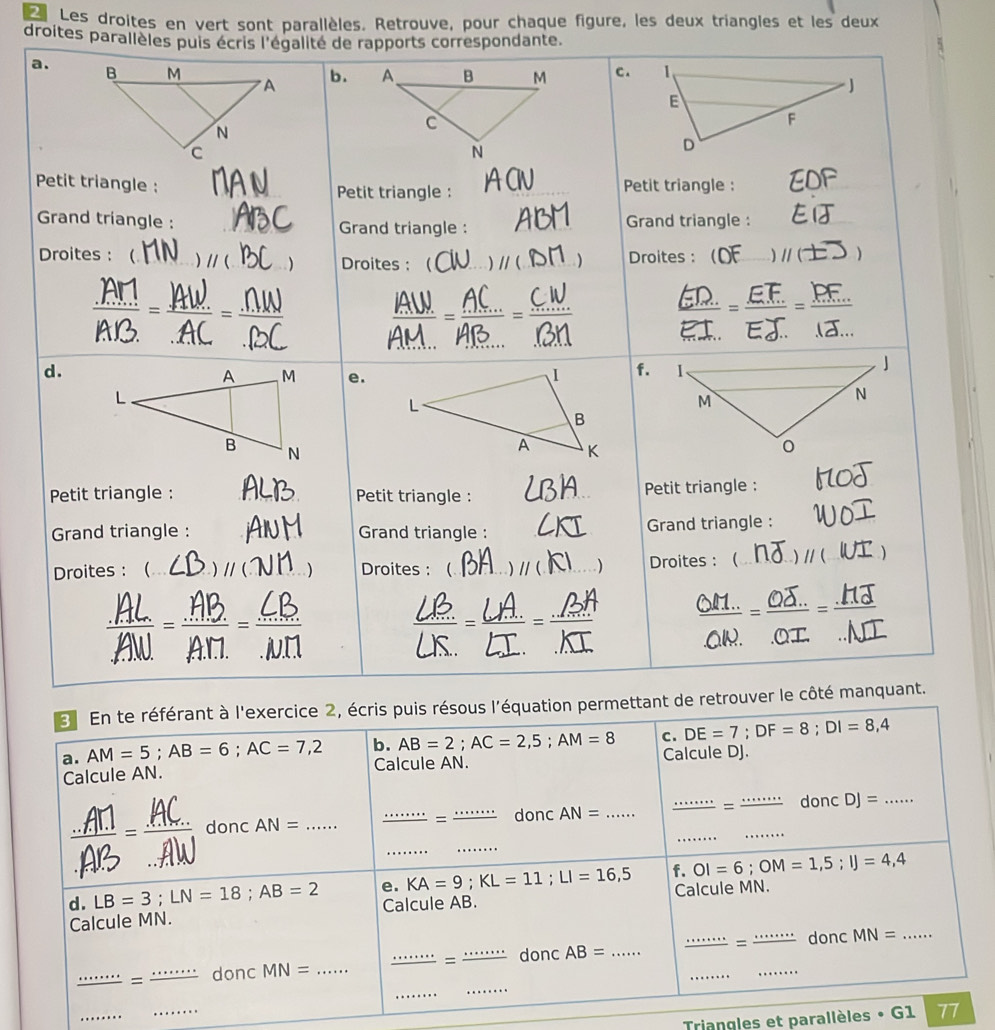 2 Les droites en vert sont parallèles. Retrouve, pour chaque figure, les deux triangles et les deux
droites parallèles puis écris l'égalité de rapports correspondante.
a. B M A N C
b. A B M C N
c. I J E F D
Petit triangle : MAN
Petit triangle : ACN
Petit triangle : EDF
Grand triangle : ABC
Grand triangle : ABM
Grand triangle : EIJ
Droites : (MN) // (BC)
Droites : (CN) // (BM)
Droites : (DF) // (IJ)
AM/AB = AN/AC = NN/BC
AN/AM = AC/AB = CN/BM
ED/EI = EF/EJ = DF/IJ
d. A M L B N
e. I L B A K
f. I J M N O
Petit triangle : ALB
Petit triangle : LBA
Petit triangle : MOJ
Grand triangle : ANM
Grand triangle : LKI
Grand triangle : NOI
Droites : (LB) // (NM)
Droites : (BA) // (KI)
Droites : (MJ) // (NI)
AL/AN = AB/AM = LB/NM
LB/LK = LA/LI = BA/KI
OM/ON = OJ/OI = MJ/NI
3 En te référant à l'exercice 2, écris puis résous l'équation permettant de retrouver le côté manquant.
a. AM = 5 ; AB = 6 ; AC = 7,2
Calcule AN.
AM/AB = AC/AN donc AN = ......
b. AB = 2 ; AC = 2,5 ; AM = 8
Calcule AN.
........ = ........ donc AN = ......
........ ........
c. DE = 7 ; DF = 8 ; DI = 8,4
Calcule DJ.
........ = ........ donc DJ = ......
........ ........
d. LB = 3 ; LN = 18 ; AB = 2
Calcule MN.
........ = ......... donc MN = ......
........ ........
e. KA = 9 ; KL = 11 ; LI = 16,5
Calcule AB.
........ = ........ donc AB = ......
........ ........
f. OI = 6 ; OM = 1,5 ; IJ = 4,4
Calcule MN.
........ = ........ donc MN = ......
........ ........
Triangles et parallèles • G1 77